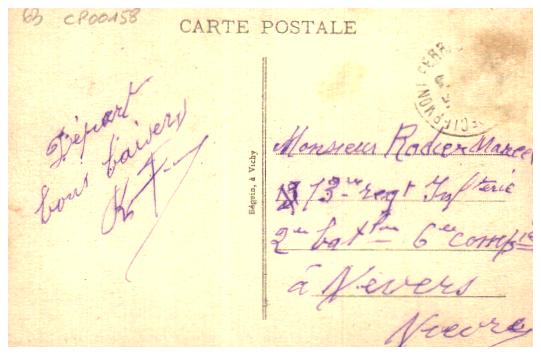 63 CP00158
CARTE POSTALE
Départ
bons baisers
Bégoin, à Vichy
CLERMONT-FERR
Monsieur Rodier Marcel
13me regt Infterie
2me batllon 6me compie
à Nevers
Nievre